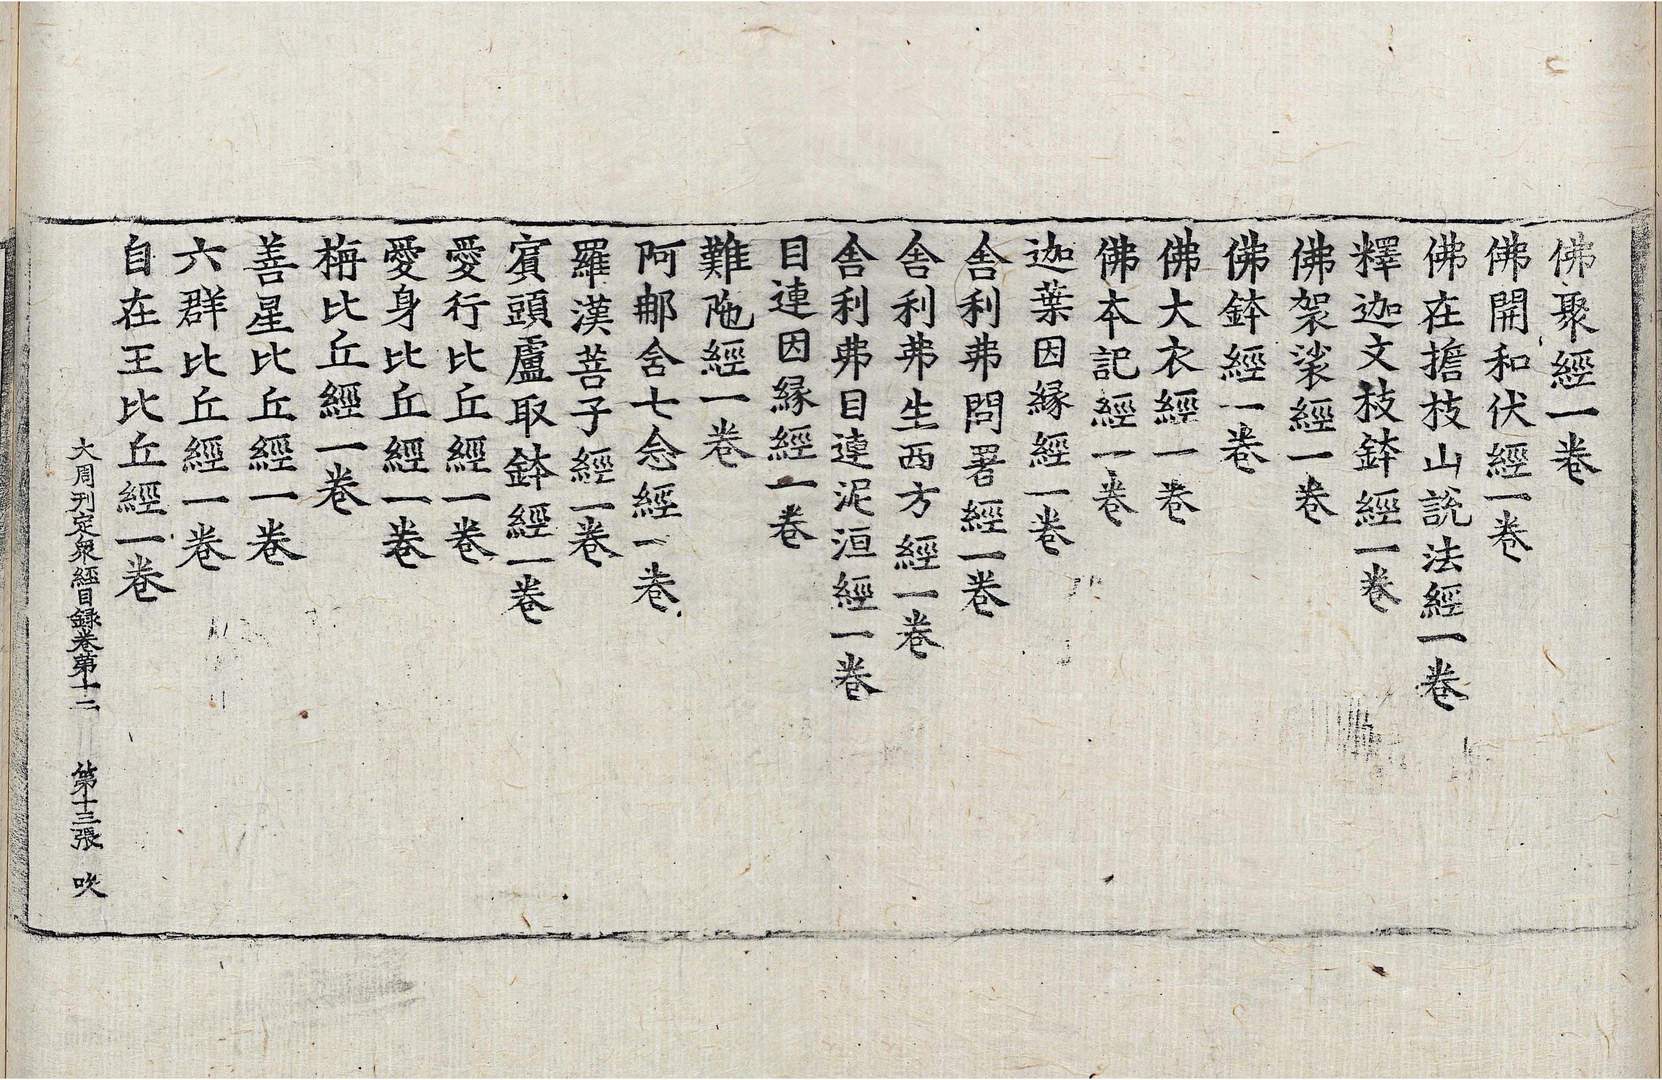 佛聚經一卷
佛開和伏經一卷
佛在擔枝山說法經一卷
釋迦文枝鉢經一卷
佛袈裟經一卷
佛鉢經一卷
佛大衣經一卷
佛本記經一卷
迦葉因縁經一卷
舍利弗問署經一卷
舍利弗生西方經一卷
舍利弗目連泥洹經一卷
目連因縁經一卷
難陁經一卷
阿那含七念經一卷
羅漢菩子經一卷
賓頭盧取鉢經一卷
愛行比丘經一卷
愛身比丘經一卷
梅比丘經一卷
善星比丘經一卷
六群比丘經一卷
自在王比丘經一卷
大周刊定衆經目録卷第十二 第十三張 吹